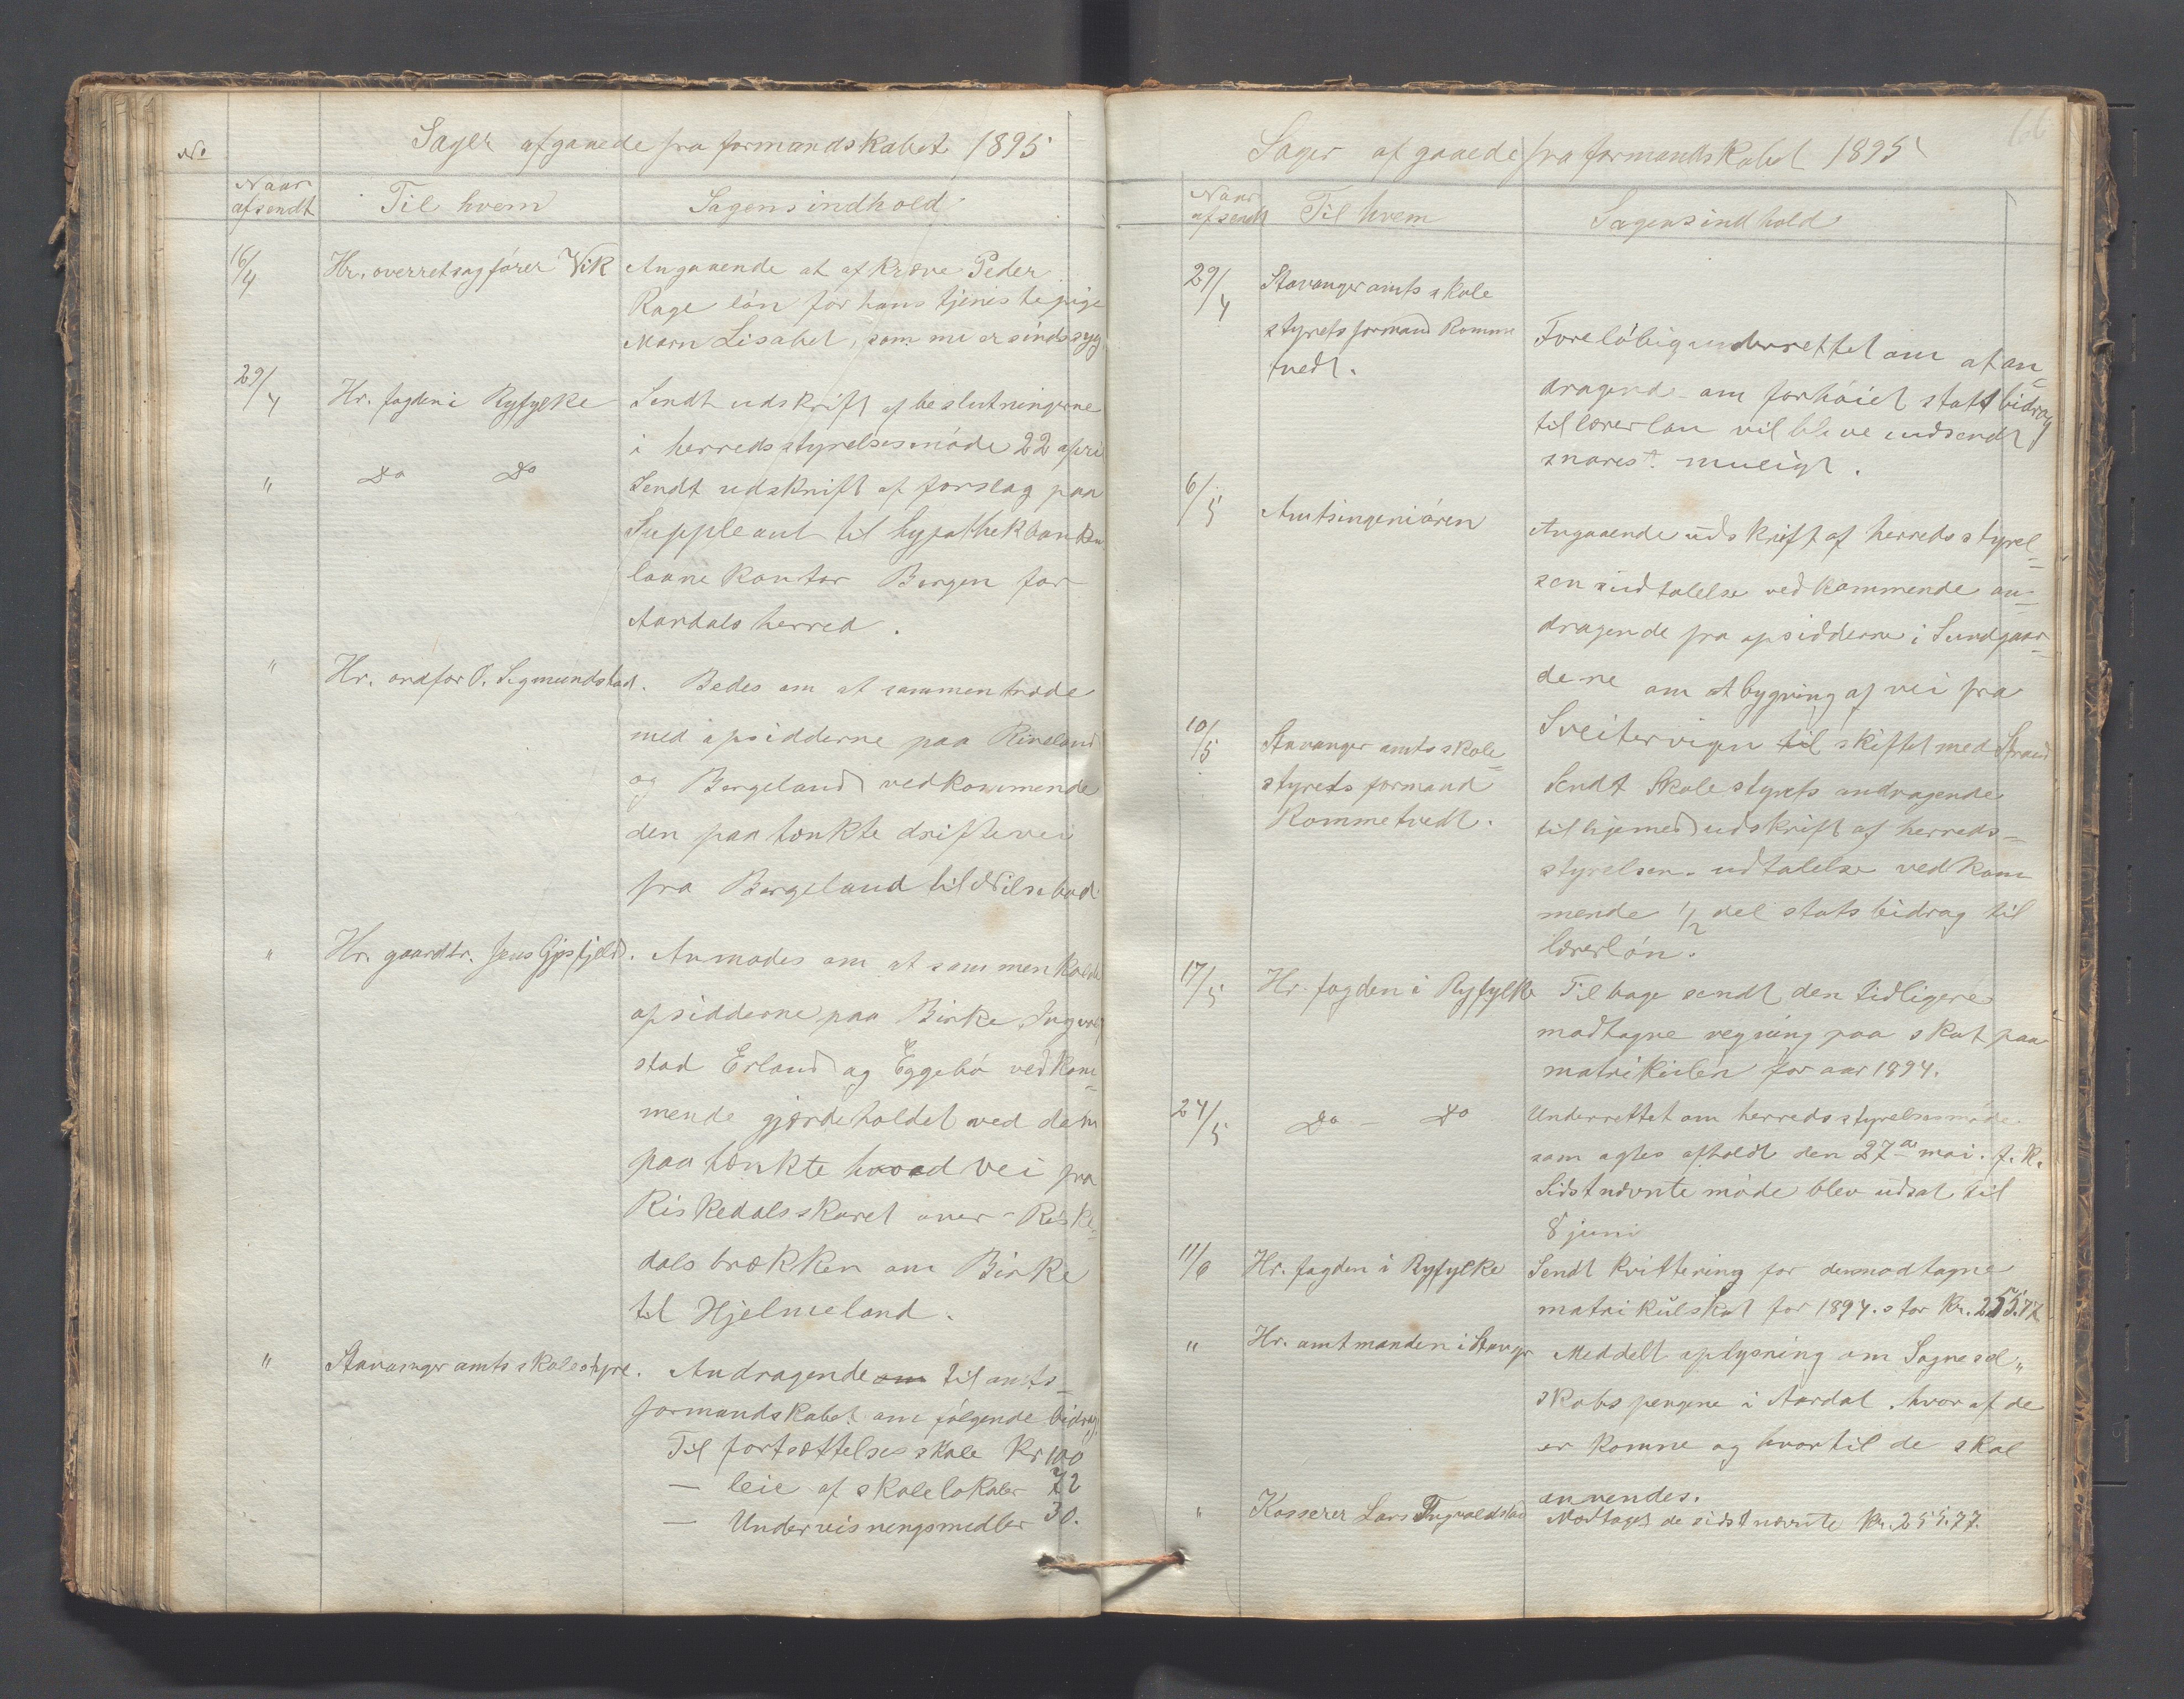 No
Sager afgaaede fra formandskabet 1895
Naar afsendt
Til hvem
Sagens indhold
16/4
Hr. overretsagfører Vik
Angaaende at afkræve Peder
Rage løn for hans tjenestepige
Marn Lisabet, som nu er sindssyg
29/4
Hr. fogden i Ryfylke
Sendt udskrift af beslutningerne
i herredsstyrelsesmøde 22 apri
"
Do Do
Sendt udskrift af forslag paa
Suppleant til hypothekbanken
laane kontor Bergen for
Aardals herred.
"
Hr. ordfør O. Sigmundstad.
Bedes om at sammentræde
med opsidderne paa Riveland
og Bergeland vedkommende
den paatænkte driftevei
fra Bergeland til Nilsebod
"
Hr. gaardbr. Jens Gjosfjeld.
Anmodes om at sammenkalde
opsidderne paa Birke, Ingvald
stad Erland og Eggebø vedkom-
mende gjærdeholdet ved dem
paatænkte hoved vei fra
Riskedalsskaret over Riske-
dalsbrækken om Birke
til Hjelmeland.
"
Stavanger amts skolestyre.
Andragende om til amts-
formandskabet om følgende bidrag.
Til fortsættelses skole Kr 100
— leie af skolelokaler 72
— Undervisningsmidler 30.
66
Sager afgaaede fra formandskabet 1895
Naar afsendt
Til hvem
Sagens indhold
29/4
Stavanger amts skole
styrets formand Komme
tvedt.
Foreløbig underrettet om at an-
dragend om forhøiet statsbidrag
til lærerløn vil blive indsendt
snarest muligt.
6/5
Amtsingeniøren
Angaaende udskrift af herredsstyrel-
sen sudtalelse vedkommende an-
dragende fra opsidderne i Sundgaar-
dene om at bygning af vei fra
Sveitervigen til skiftet med Strand
10/5
Stavanger amts skole-
styrets formand
Kommetvedt.
Sendt Skolestyrets andragende
tilligemed udskrift af herreds-
styrelsen. udtalelse vedkom
mende 1/2 del statsbidrag til
lærerløn.
17/5
Hr. fogden i Ryfylke
Tilbage sendt den tidligere
modtagne regning paa skat paa
matrikulen for aar 1894.
24/5
Do — Do
Underrettet om herredsstyrelsesmøde
som agtes afholdt den 27de mai. f. k.
Sidstnævnte møde blev udsat til
8 juni
11/6
Hr. fogden i Ryfylke
Sendt kvittering for den modtagne
matrikulskat for 1894. stor Kr. 255.77
"
Hr. amtmanden i Stavanger
Meddelt oplysning om Sogneseel-
skabs pengene i Aardal. hvoraf de
er komne og hvortil de skal
anvendes.
"
Kasserer Lars Ingvaldstad
Modtages de sidstnævnte Kr. 255.77.